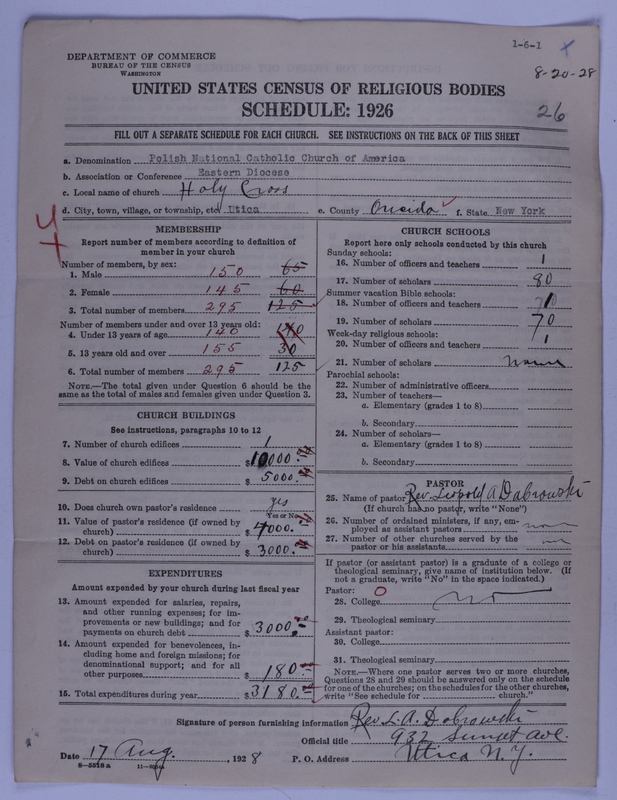 1-6-1 x
DEPARTMENT OF COMMERCE
BUREAU OF THE CENSUS
WASHINGTON
8-20-28
UNITED STATES CENSUS OF RELIGIOUS BODIES
SCHEDULE: 1926
26
FILL OUT A SEPARATE SCHEDULE FOR EACH CHURCH. SEE INSTRUCTIONS ON THE BACK OF THIS SHEET
a. Denomination Polish National Catholic Church of America
b. Association or Conference Eastern Diocese
c. Local name of church Holy Cross
d. City, town, village, or township, etc. Utica e. County Oneida f. State New York
MEMBERSHIP
Report number of members according to definition of
member in your church
Number of members, by sex:
1. Male 150 65
2. Female 145 60
3. Total number of members 295 125
Number of members under and over 13 years old:
4. Under 13 years of age 140
5. 13 years old and over 155 30
6. Total number of members 295 125
NOTE.—The total given under Question 6 should be the
same as the total of males and females given under Question 3.
CHURCH BUILDINGS
See instructions, paragraphs 10 to 12
7. Number of church edifices 1
8. Value of church edifices $10000.
9. Debt on church edifices $ 5000.
10. Does church own pastor's residence yes
(Yes or No)
11. Value of pastor's residence (if owned by
church) $4000.
12. Debt on pastor's residence (if owned by
church) $3000.
EXPENDITURES
Amount expended by your church during last fiscal year
13. Amount expended for salaries, repairs,
and other running expenses; for im-
provements or new buildings; and for
payments on church debt $3000.
14. Amount expended for benevolences, in-
cluding home and foreign missions; for
denominational support; and for all
other purposes $180.
15. Total expenditures during year $3180.
CHURCH SCHOOLS
Report here only schools conducted by this church
Sunday schools:
16. Number of officers and teachers 1
17. Number of scholars 80
Summer vacation Bible schools:
18. Number of officers and teachers 1
19. Number of scholars 70
Week-day religious schools:
20. Number of officers and teachers 1
21. Number of scholars none
Parochial schools:
22. Number of administrative officers
23. Number of teachers—
a. Elementary (grades 1 to 8)
b. Secondary
24. Number of scholars—
a. Elementary (grades 1 to 8)
b. Secondary
PASTOR
25. Name of pastor Rev. Leopold A Dabrowski
(If church has no pastor, write "None")
26. Number of ordained ministers, if any, em-
ployed as assistant pastors no
27. Number of other churches served by the
pastor or his assistants
If pastor (or assistant pastor) is a graduate of a college or
theological seminary, give name of institution below. (If
not a graduate, write "No" in the space indicated.)
Pastor: O
28. College No
29. Theological seminary
Assistant pastor:
30. College
31. Theological seminary
NOTE.—Where one pastor serves two or more churches,
Questions 28 and 29 should be answered only on the schedule
for one of the churches; on the schedules for the other churches,
write "See schedule for church."
Signature of person furnishing information Rev. L. A. Dobrowski
Official title 932 Sunset ave.
Date 17 Aug., 1928 P. O. Address Utica N. Y.
8-5518a